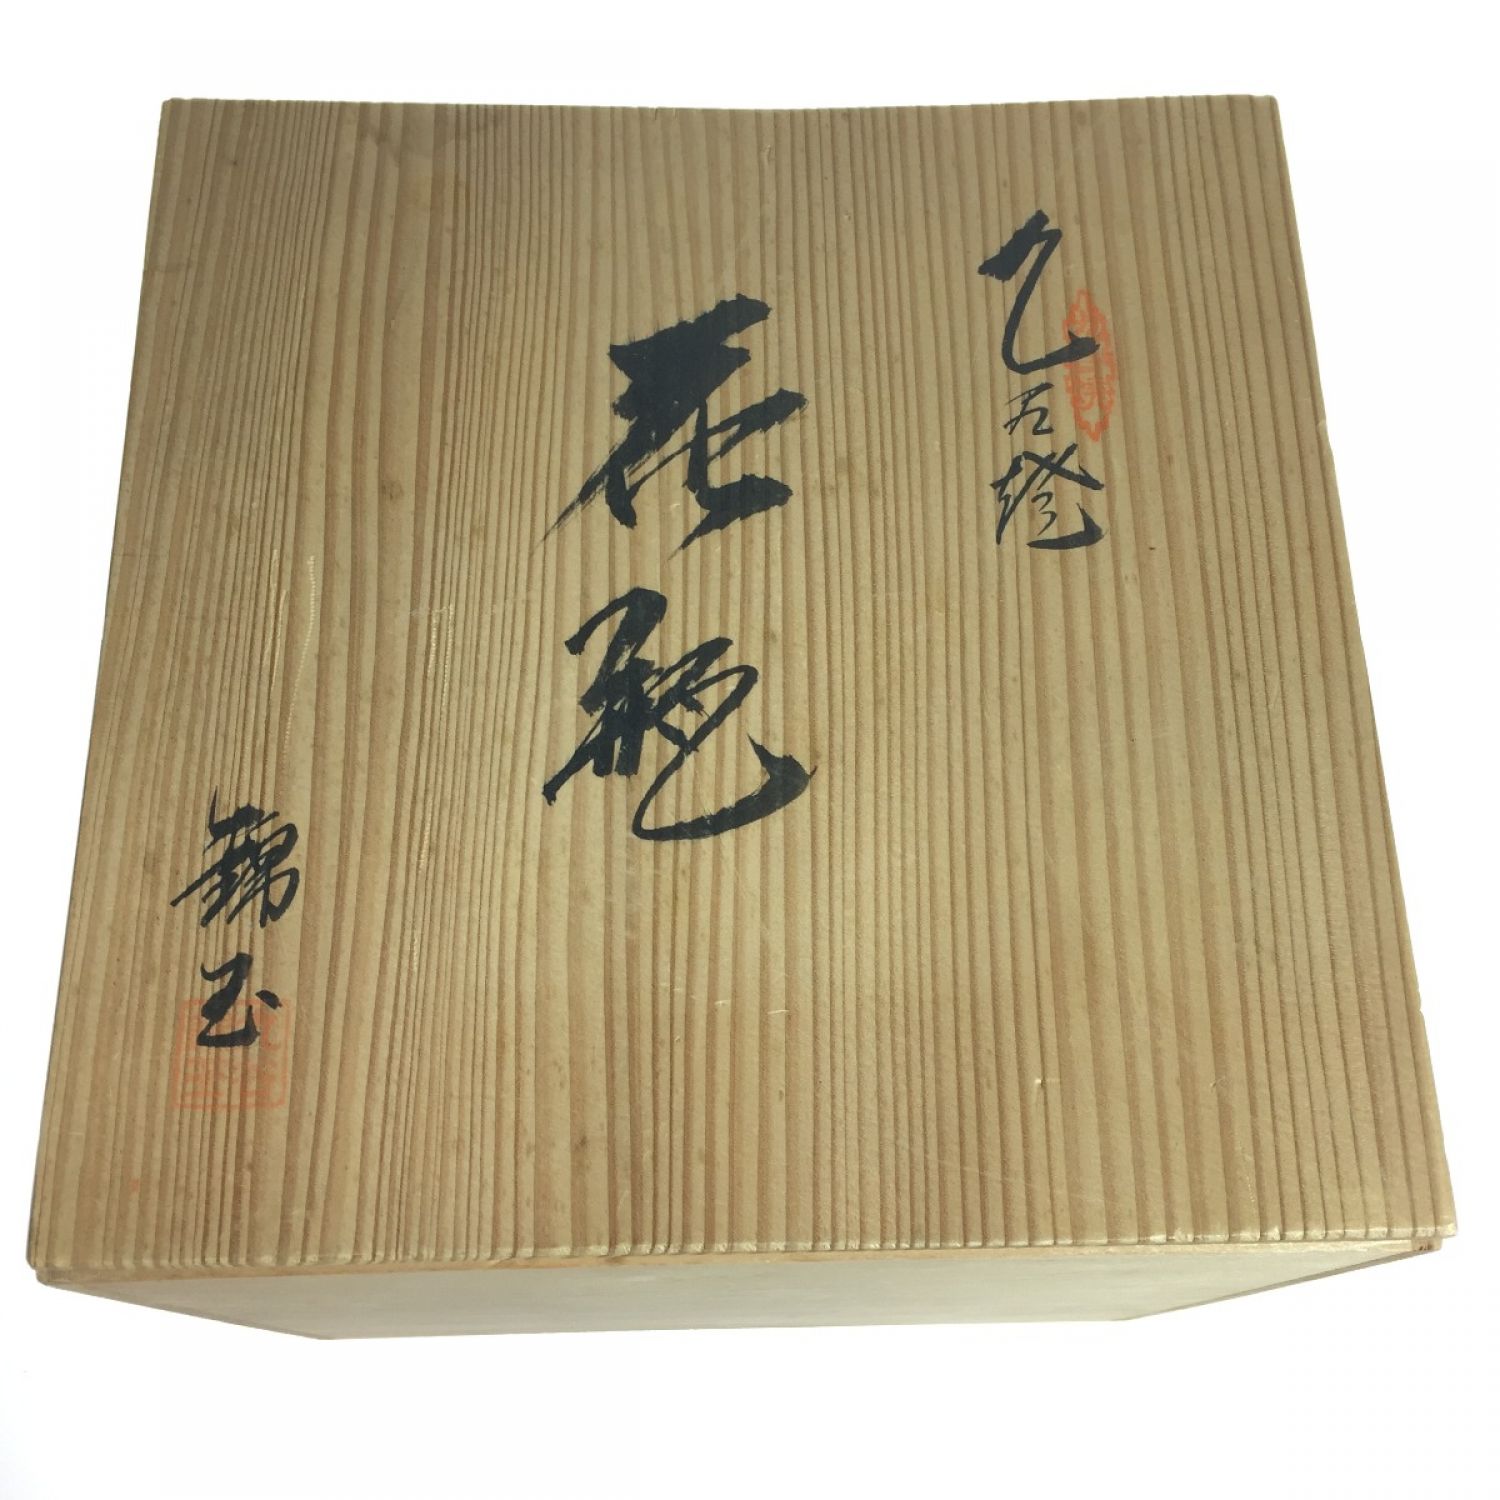 九谷焼
花瓶
錦玉